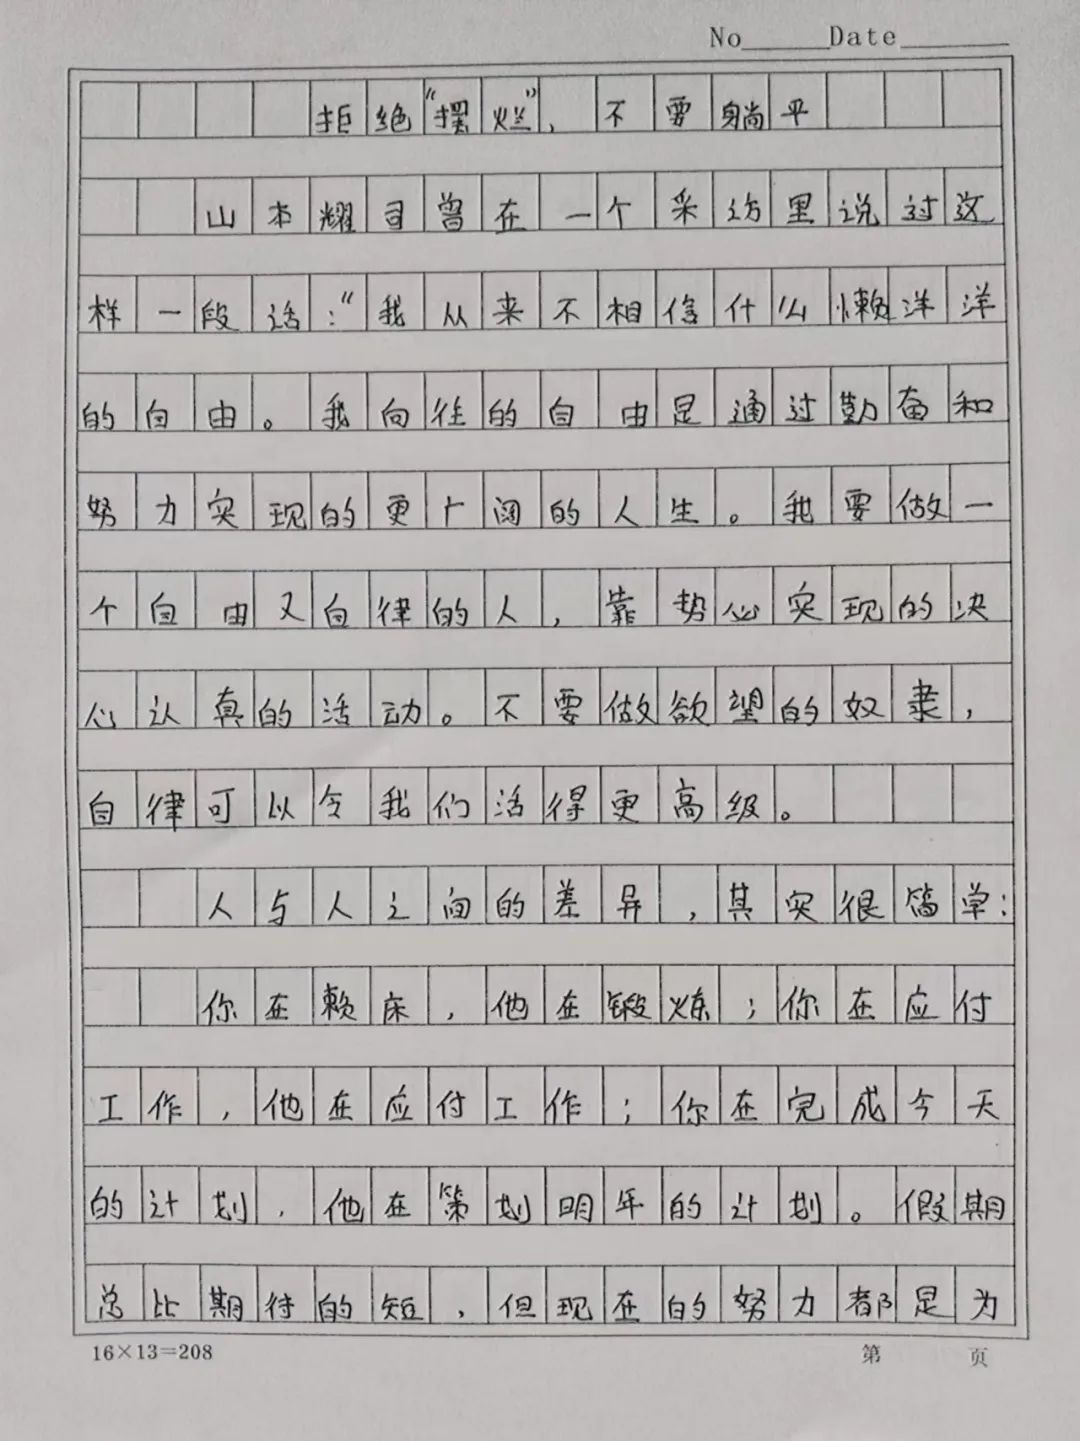 No Date
拒绝“摆烂”,不要躺平
山本耀司曾在一个采访里说过这
样一段话:“我从来不相信什么懒洋洋
的自由。我向往的自由是通过勤奋和
努力实现的更广阔的人生。我要做一
个自由又自律的人,靠势心实现的决
心认真的活动。不要做欲望的奴隶,
自律可以令我们活得更高级。
人与人之间的差异,其实很简单:
你在赖床,他在锻炼;你在应付
工作,他在应付工作;你在完成今天
的计划,他在策划明年的计划。假期
总比期待的短,但现在的努力都是为
16×13=208 第 页